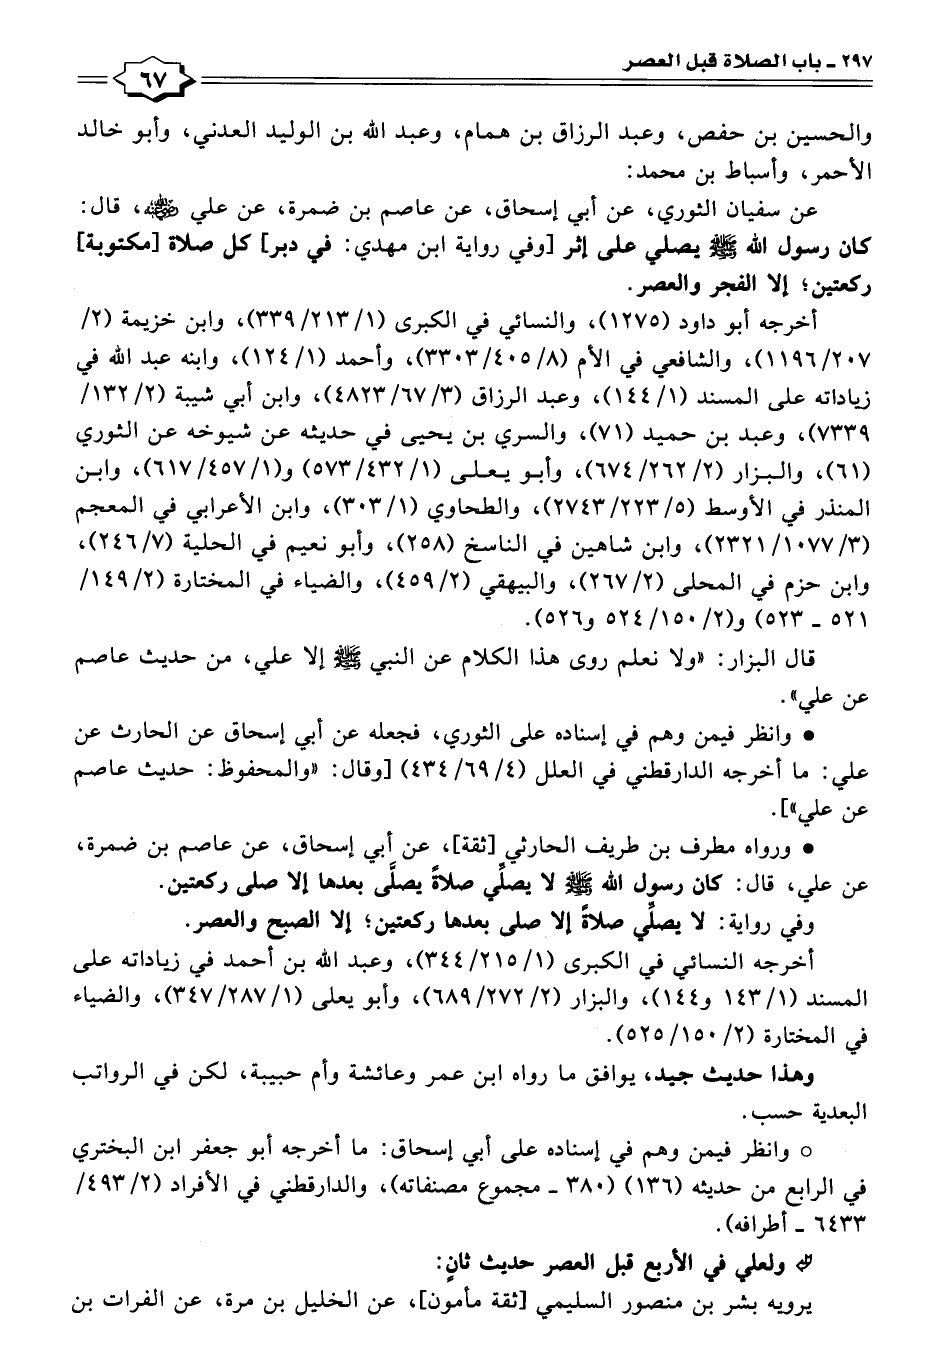 ٢٩٧ ـ باب الصلاة قبل العصر
٦٧
والحسين بن حفص، وعبد الرزاق بن همام، وعبد الله بن الوليد العدني، وأبو خالد
الأحمر، وأسباط بن محمد:
عن سفيان الثوري، عن أبي إسحاق، عن عاصم بن ضمرة، عن علي رضي الله عنه، قال:
كان رسول الله ﷺ يصلي على إثر [وفي رواية ابن مهدي: في دبر] كل صلاة [مكتوبة]
ركعتين؛ إلا الفجر والعصر.
أخرجه أبو داود (١٢٧٥)، والنسائي في الكبرى (٣٣٩/٢١٣/١)، وابن خزيمة (٢/
١١٩٦/٢٠٧)، والشافعي في الأم (٣٣٠٣/٤٠٥/٨)، وأحمد (١٢٤/١)، وابنه عبد الله في
زياداته على المسند (١٤٤/١)، وعبد الرزاق (٤٨٢٣/٦٧/٣)، وابن أبي شيبة (١٣٢/٢/
٧٣٣٩)، وعبد بن حميد (٧١)، والسري بن يحيى في حديثه عن شيوخه عن الثوري
(٦١)، والبزار (٦٧٤/٢٦٢/٢)، وأبو يعلى (٥٧٣/٤٣٢/١) و(٦١٧/٤٥٧/١)، وابن
المنذر في الأوسط (٢٧٤٣/٢٢٣/٥)، والطحاوي (٣٠٣/١)، وابن الأعرابي في المعجم
(٢٣٢١/١٠٧٧/٣)، وابن شاهين في الناسخ (٢٥٨)، وأبو نعيم في الحلية (٢٤٦/٧)،
وابن حزم في المحلى (٢٦٧/٢)، والبيهقي (٤٥٩/٢)، والضياء في المختارة (١٤٩/٢/
٥٢١ ـ ٥٢٣) و(٥٢٤/١٥٠/٢ و٥٢٦).
قال البزار: «ولا نعلم روى هذا الكلام عن النبي ﷺ إلا علي، من حديث عاصم
عن علي».
● وانظر فيمن وهم في إسناده على الثوري، فجعله عن أبي إسحاق عن الحارث عن
علي: ما أخرجه الدارقطني في العلل (٤٣٤/٦٩/٤) [وقال: «والمحفوظ: حديث عاصم
عن علي»].
● ورواه مطرف بن طريف الحارثي [ثقة]، عن أبي إسحاق، عن عاصم بن ضمرة،
عن علي، قال: كان رسول الله ﷺ لا يصلِّي صلاةً يصلَّى بعدها إلا صلى ركعتين.
وفي رواية: لا يصلِّي صلاةً إلا صلى بعدها ركعتين؛ إلا الصبح والعصر.
أخرجه النسائي في الكبرى (٣٤٤/٢١٥/١)، وعبد الله بن أحمد في زياداته على
المسند (١٤٣/١ و١٤٤)، والبزار (٦٨٩/٢٧٢/٢)، وأبو يعلى (٣٤٧/٢٨٧/١)، والضياء
في المختارة (٥٢٥/١٥٠/٢).
وهذا حديث جيد، يوافق ما رواه ابن عمر وعائشة وأم حبيبة، لكن في الرواتب
البعدية حسب.
○ وانظر فيمن وهم في إسناده على أبي إسحاق: ما أخرجه أبو جعفر ابن البختري
في الرابع من حديثه (١٣٦) (٣٨٠ ـ مجموع مصنفاته)، والدارقطني في الأفراد (٤٩٣/٢/
٦٤٣٣ ـ أطرافه).
ولعلي في الأربع قبل العصر حديث ثانٍ:
يرويه بشر بن منصور السليمي [ثقة مأمون]، عن الخليل بن مرة، عن الفرات بن